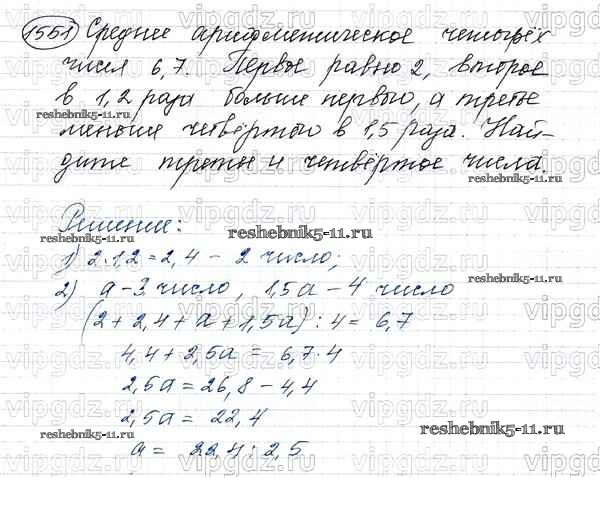 1551 Среднее арифметическое четырёх
чисел 6,7. Первое равно 2, второе
в 1,2 раза больше первого, а третье
меньше четвёртого в 1,5 раза. Най-
дите третье и четвёртое числа.
Решение:
1) 2·1,2=2,4 – 2 число;
2) a – 3 число, 1,5a – 4 число
(2 + 2,4 + a + 1,5a) : 4 = 6,7
4,4 + 2,5a = 6,7·4
2,5a = 26,8 – 4,4
2,5a = 22,4
a = 22,4 : 2,5
reshebnik5-11.ru
vipgdz.ru